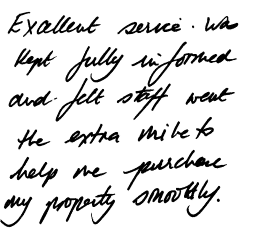 Excellent service. Was
kept fully informed
and felt staff went
the extra mile to
help me purchase
my property smoothly.